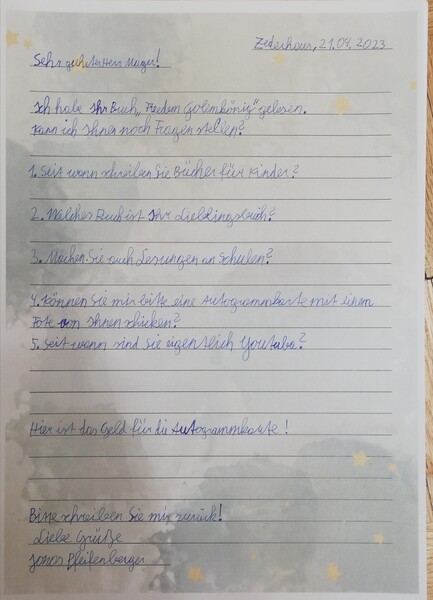 Zederhaus, 21.04.2023
Sehr geehrter Herr Mager!
Ich habe Ihr Buch „Freedom Golemkönig“ gelesen.
Kann ich Ihnen noch Fragen stellen?
1. Seit wann schreiben Sie Bücher für Kinder?
2. Welches Buch ist Ihr Lieblingsbuch?
3. Machen Sie auch Lesungen an Schulen?
4. Können Sie mir bitte eine Autogrammkarte mit einem
Foto von Ihnen schicken?
5. Seit wann sind Sie eigentlich Youtuber?
Hier ist das Geld für die Autogrammkarte!
Bitte schreiben Sie mir zurück!
Liebe Grüße
Jonas Pfeifenberger